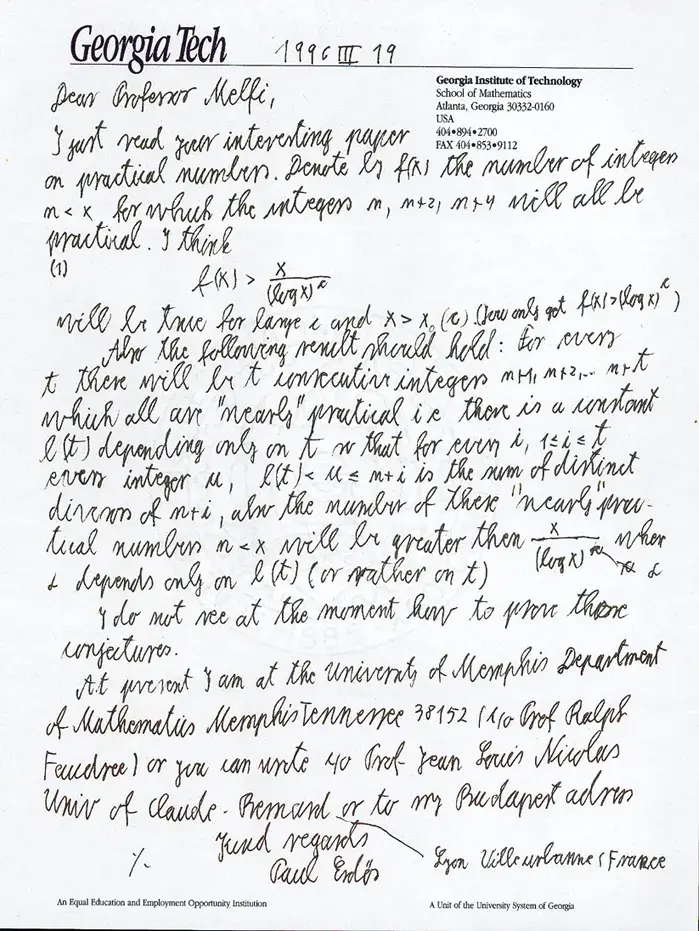 Georgia Tech 1996 III 19
Georgia Institute of Technology
School of Mathematics
Atlanta, Georgia 30332-0160
USA
404•894•2700
FAX 404•853•9112
Dear Professor Melfi,
I just read your interesting paper
on practical numbers. Denote by f(x) the number of integers
n < x for which the integers n, n+2, n+4 will all be
practical. I think
(1) f(x) > x/(log x)^c
will be true for large c and x > x₀(c). (You only get f(x) > (log x)^c)
Also the following result should hold: For every
t there will be t consecutive integers n+1, n+2,... n+t
which all are "nearly" practical i.e there is a constant
l(t) depending only on t so that for every i, 1 ≤ i ≤ t
every integer u, l(t) < u ≤ n+i is the sum of distinct
divisors of n+i, also the number of these "nearly" prac-
tical numbers n < x will be greater then x/(log x)^α where
α depends only on l(t) (or rather on t)
I do not see at the moment how to prove these
conjectures.
At present I am at the University of Memphis Department
of Mathematics Memphis Tennessee 38152 (c/o Prof Ralph
Faudree) or you can write to Prof Jean Louis Nicolas
Univ of Claude-Bernard or to my Budapest adress
Lyon Villeurbanne (France
Kind regards
Paul Erdős
./.
An Equal Education and Employment Opportunity Institution
A Unit of the University System of Georgia